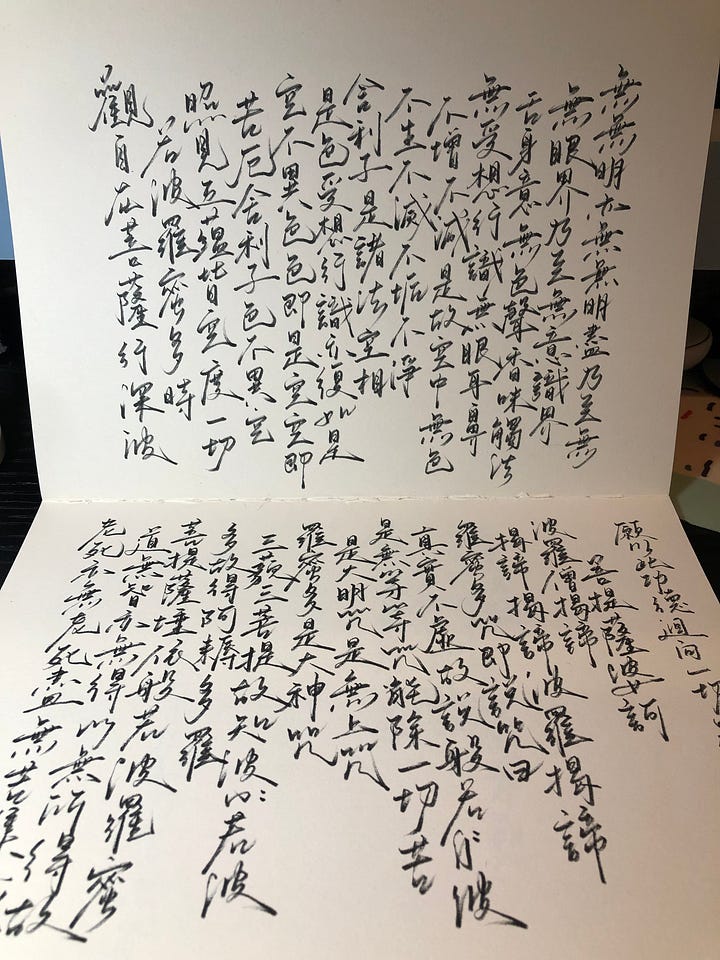 觀自在菩薩行深波
若波羅蜜多時
照見五蘊皆空度一切
苦厄舍利子色不異空
空不異色色即是空空即
是色受想行識亦復如是
舍利子是諸法空相
不生不滅不垢不淨
不增不減是故空中無色
無受想行識無眼耳鼻
舌身意無色聲香味觸法
無眼界乃至無意識界
無無明亦無無明盡乃至無
老死亦無老死盡無苦集
道無智亦無得以無所得故
菩提薩埵依般若波羅蜜
多故得阿耨多羅
三藐三菩提故知波若波
羅蜜多是大神咒
是大明咒是無上咒
是無等等咒能除一切苦
真實不虛故說般若波
羅蜜多咒即說咒曰
揭諦揭諦波羅揭諦
波羅僧揭諦
菩提薩婆訶
願以此功德迴向一切